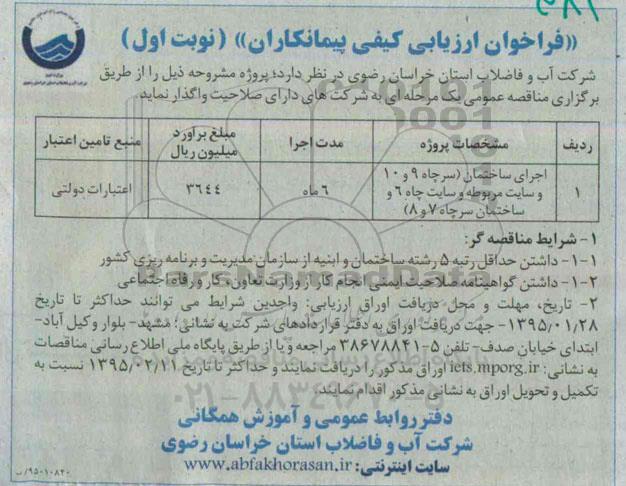 «فراخوان ارزیابی کیفی پیمانکاران» (نوبت اول)
شرکت آب و فاضلاب استان خراسان رضوی در نظر دارد؛ پروژه مشروحه ذیل را از طریق
برگزاری مناقصه عمومی یک مرحله ای به شرکت های دارای صلاحیت واگذار نماید.
ردیف مشخصات پروژه مدت اجرا مبلغ برآورد میلیون ریال منبع تامین اعتبار
۱ اجرای ساختمان (سرچاه ۹ و ۱۰ ۶ ماه ۳۶۴۴ اعتبارات دولتی
و سایت مربوطه و سایت چاه ۶ و
ساختمان سرچاه ۷ و ۸)
۱- شرایط مناقصه گر:
۱-۱- داشتن حداقل رتبه ۵ رشته ساختمان و ابنیه از سازمان مدیریت و برنامه ریزی کشور
۱-۲- داشتن گواهینامه صلاحیت ایمنی انجام کار از وزارت تعاون، کار و رفاه اجتماعی
۲- تاریخ، مهلت و محل دریافت اوراق ارزیابی: واجدین شرایط می توانند حداکثر تا تاریخ
۱۳۹۵/۰۱/۲۸- جهت دریافت اوراق به دفتر قراردادهای شرکت به نشانی؛ مشهد- بلوار وکیل آباد-
ابتدای خیابان صدف- تلفن ۵-۳۸۶۷۸۸۴۱ مراجعه و یا از طریق پایگاه ملی اطلاع رسانی مناقصات
به نشانی: iets.mporg.ir اوراق مذکور را دریافت نمایند و حداکثر تا تاریخ ۱۳۹۵/۰۲/۱۱ نسبت به
تکمیل و تحویل اوراق به نشانی مذکور اقدام نمایند.
دفتر روابط عمومی و آموزش همگانی
شرکت آب و فاضلاب استان خراسان رضوی
سایت اینترنتی: www.abfakhorasan.ir
۹۵۰۱۰۸۲۰/ب
ParsNamadData
۰۲۱-۸۸۳۴۹۶۷۰-۵